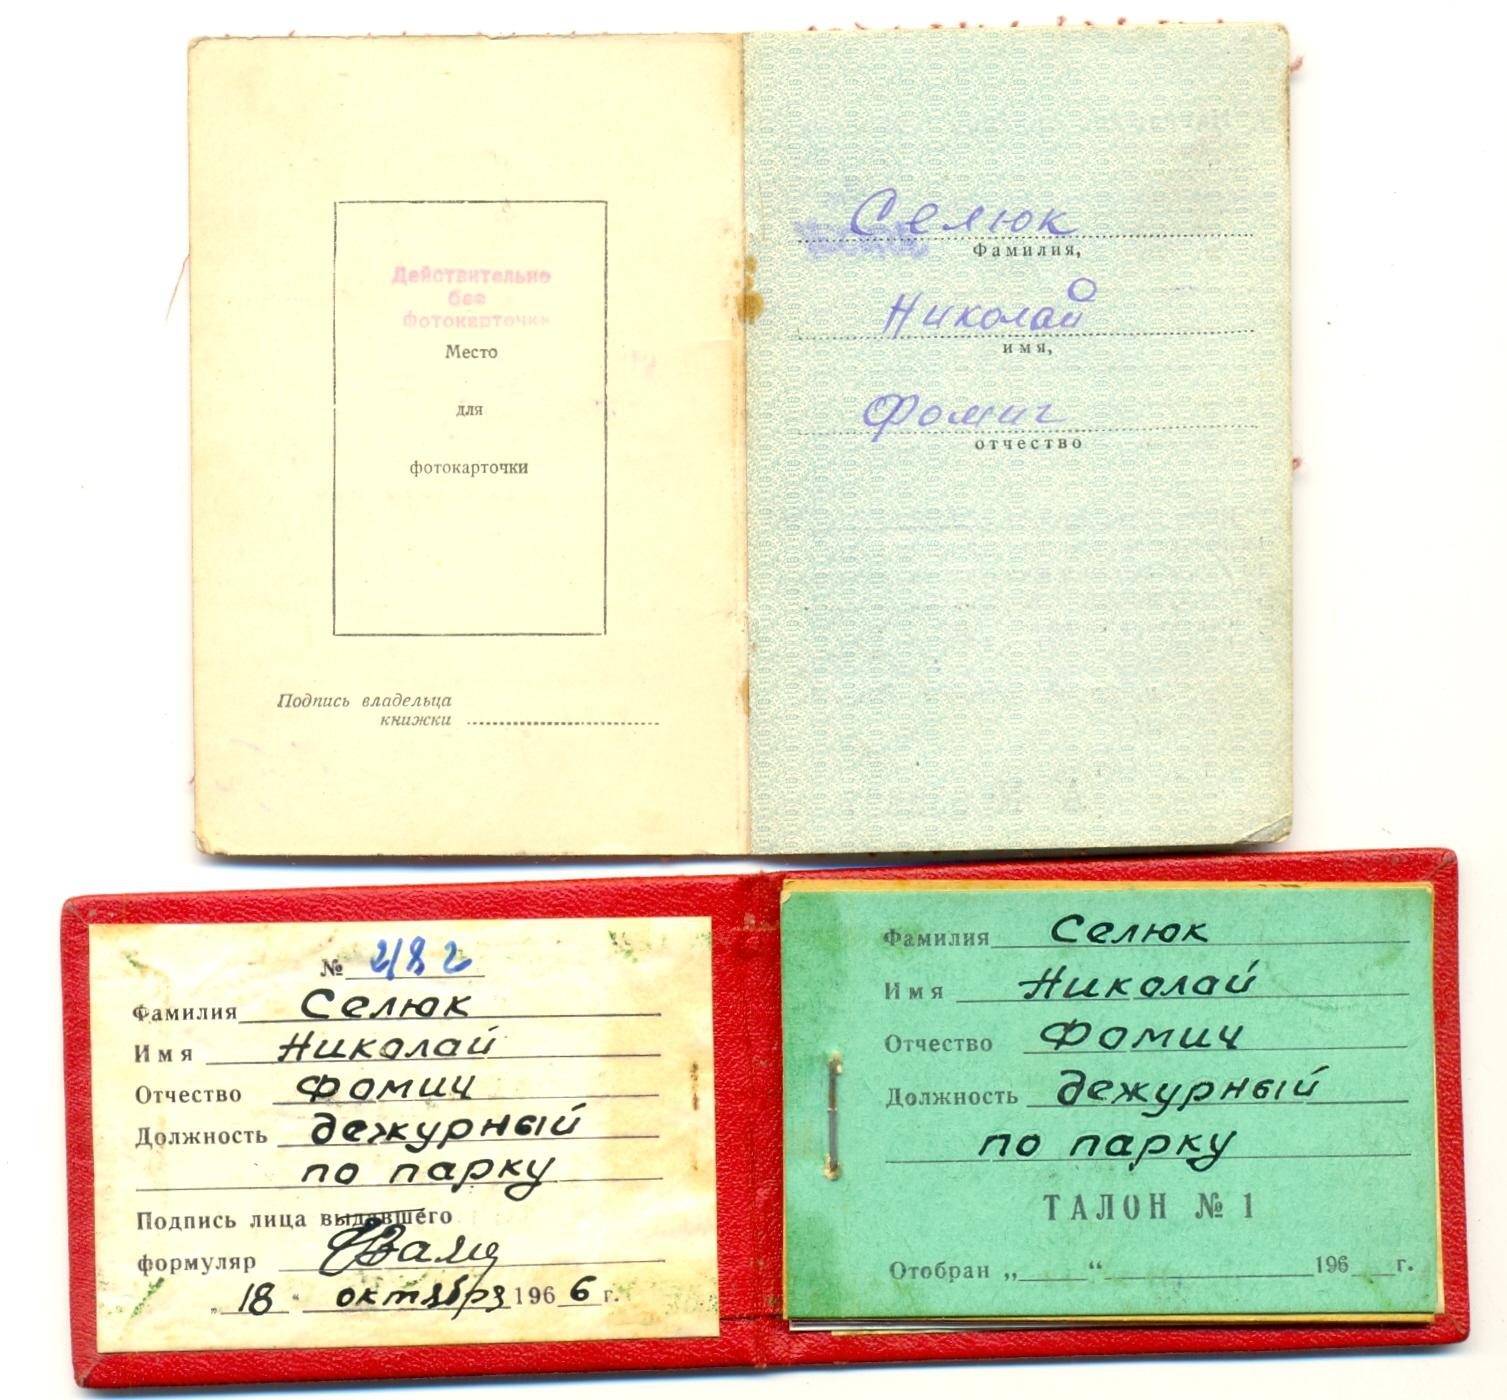 Действительно
без
фотокарточки
Место
для
фотокарточки
Подпись владельца
книжки
Селюк
Фамилия,
Николай
имя,
Фомич
отчество
№ 2182
Фамилия Селюк
Имя Николай
Отчество Фомич
Должность дежурный
по парку
Подпись лица выдавшего
формуляр
„18" октября 1966 г.
Фамилия Селюк
Имя Николай
Отчество Фомич
Должность дежурный
по парку
ТАЛОН № 1
Отобран „ “ 196 г.